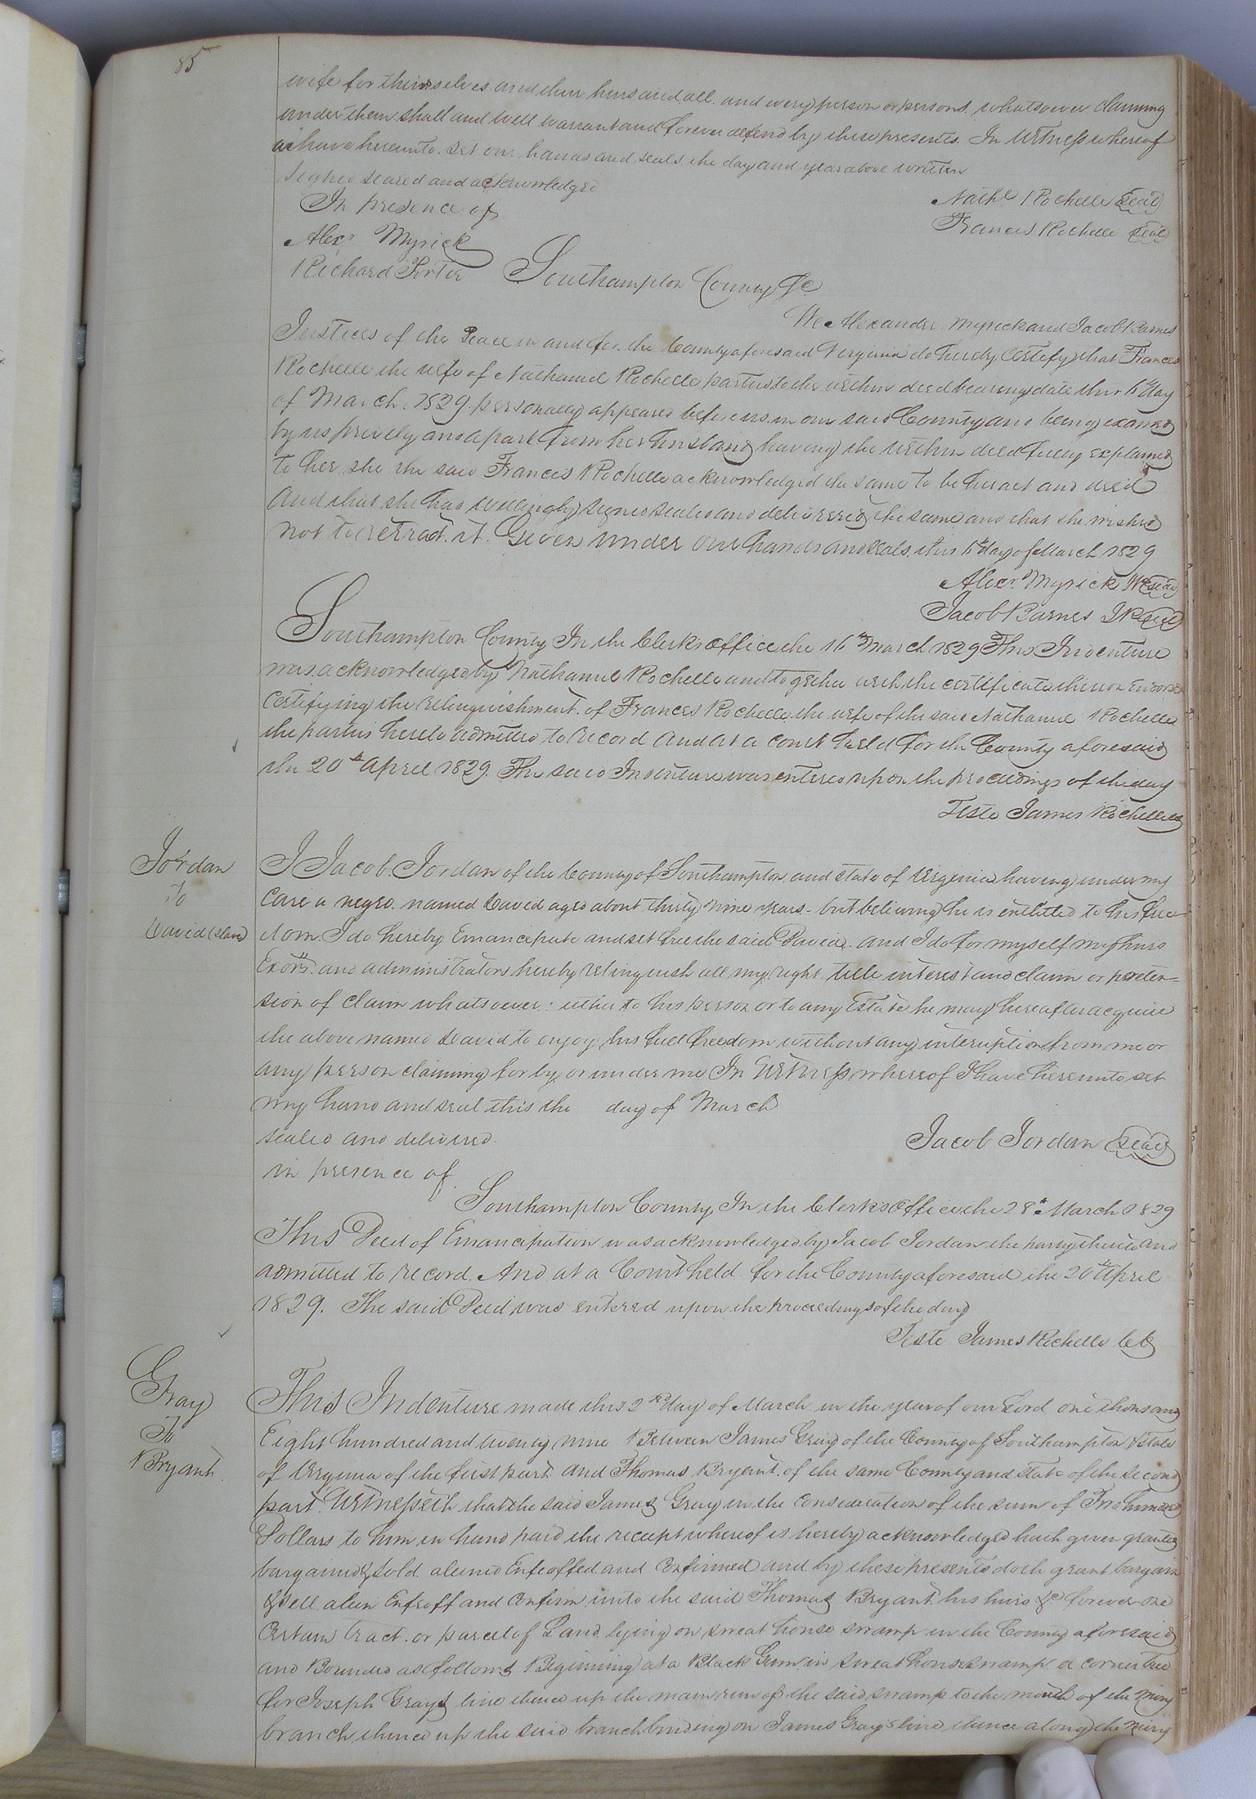 85
wife for themselves and their heirs and all and every person or persons whatsoever claiming
under them shall and will warrant and forever defend by these presents. In Witness whereof
we have hereunto set our hands and seals the day and year above written
Signed sealed and acknowledged
In presence of
Nathl Rochelle Seal
Alexr Myrick
Frances Rochelle Seal
Richard Porter
Southampton County Sc
We Alexander Myrick and Jacob Barnes
Justices of the Peace in and for the County aforesaid Virginia do hereby certify that Frances
Rochelle the wife of Nathaniel Rochelle parties to the within deed bearing date this day
of March 1829 personally appeared before us in our said County and being examd
by us privily and apart from her husband having the within deed fully explained
to her she the said Frances Rochelle acknowledged the same to be her act and deed
And that she had willingly signed sealed and delivered the same and that she wished
not to retract it. Given under our hands and seals this day of March 1829
Alexr Myrick Seal
Jacob Barnes JP Seal
Southampton County In the Clerks Office the 16th March 1829 This Indenture
was acknowledged by Nathaniel Rochelle and together with the certificate thereon Endorsd
Certifying the relinquishment of Frances Rochelle the wife of the said Nathaniel Rochelle
the parties hereto admitted to record And at a court held for the County aforesaid
the 20th April 1829. The said Indenture was entered upon the proceedings of the day
Teste James Rochelle
Jordan
To
David (slave)
I Jacob Jordan of the County of Southampton and state of Virginia having under my
care a negro named David aged about thirty nine years but believing he is entitled to his free
dom I do hereby Emancipate and set free the said David and I do for myself my heirs
Exors and administrators hereby relinquish all my right title interest and claim or preten=
sion of claim whatsoever: either to his person or to any Estate he may hereafter acquire
the above named David to enjoy his full freedom without any interuption from me or
any person claiming for by or under me In Witness whereof I have hereunto set
my hand and seal this the day of March
sealed and delivered
Jacob Jordan Seal
in presence of
Southampton County In the Clerks Office the 28th March 1829
This Deed of Emancipation was acknowledged by Jacob Jordan the party thereto and
admitted to record. And at a Court held for the County aforesaid the 20th April
1829. The said Deed was entered upon the proceedings of the day
Teste James Rochelle Clk
Gray
To
Bryant
This Indenture made this 2nd day of March in the year of our Lord one thousand
Eight hundred and twenty nine Between James Gray of the County of Southampton & state
of Virginia of the first part and Thomas Bryant of the same County and state of the second
part Witnesseth that the said James Gray in the consideration of the sum of hundred
Dollars to him in hand paid the receipt whereof is hereby acknowledged hath given granted
bargained & sold aliened Enfeoffed and Confirmed and by these presents doth grant bargain
& sell alien Enfeoff and Confirm unto the said Thomas Bryant his heirs &c forever one
Certain tract or parcel of Land lying on sweat house swamp in the County aforesaid
and Bounded as follows Beginning at a Black Gum in sweat house swamp a corner tree
for Joseph Grays line thence up the main run of the said swamp to the mouth of the miry
branch thence up the said branch binding on James Grays line thence along the miry